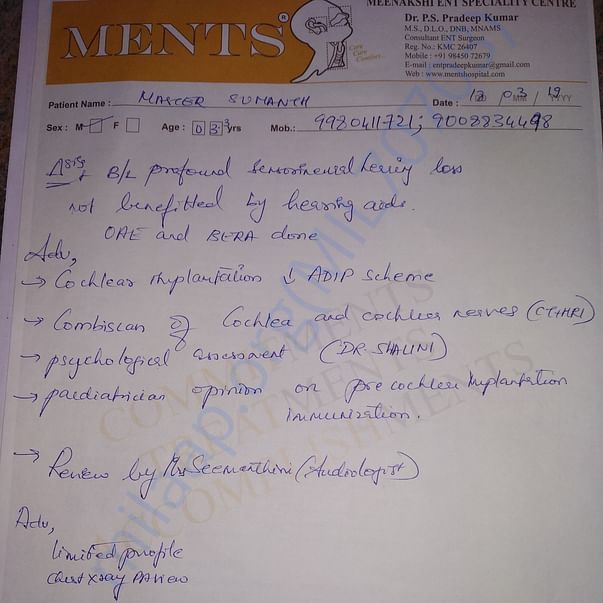 MEENAKSHI ENT SPECIALITY CENTRE
MENTS®
Care Cure Comfort...
Dr. P.S. Pradeep Kumar
M.S., D.L.O., DNB, MNAMS
Consultant ENT Surgeon
Reg. No.: KMC 26407
Mobile : +91 98450 72679
E-mail : entpradeepkumar@gmail.com
Web : www.mentshospital.com
Patient Name : MASTER SUMANTH Date : 12 / 03 / 19
Sex : M F Age : 03 yrs Mob.: 9980411721; 9008834498
B/L profound sensorineural hearing loss
not benefitted by hearing aids.
OAE and BERA done
Adv,
→ Cochlear Implantation ↓ ADIP scheme
→ Combiscan of Cochlea and cochlear nerves (CT/MRI)
→ psychological assessment (DR SHALINI)
→ paediatrician opinion on pre cochlear Implantation
immunization.
→ Review by Mrs Seemanthini (Audiologist)
Adv,
limited profile
chest xray PA view
COMMITMENTS
TREATMENTS
ACCOMPLISHMENTS